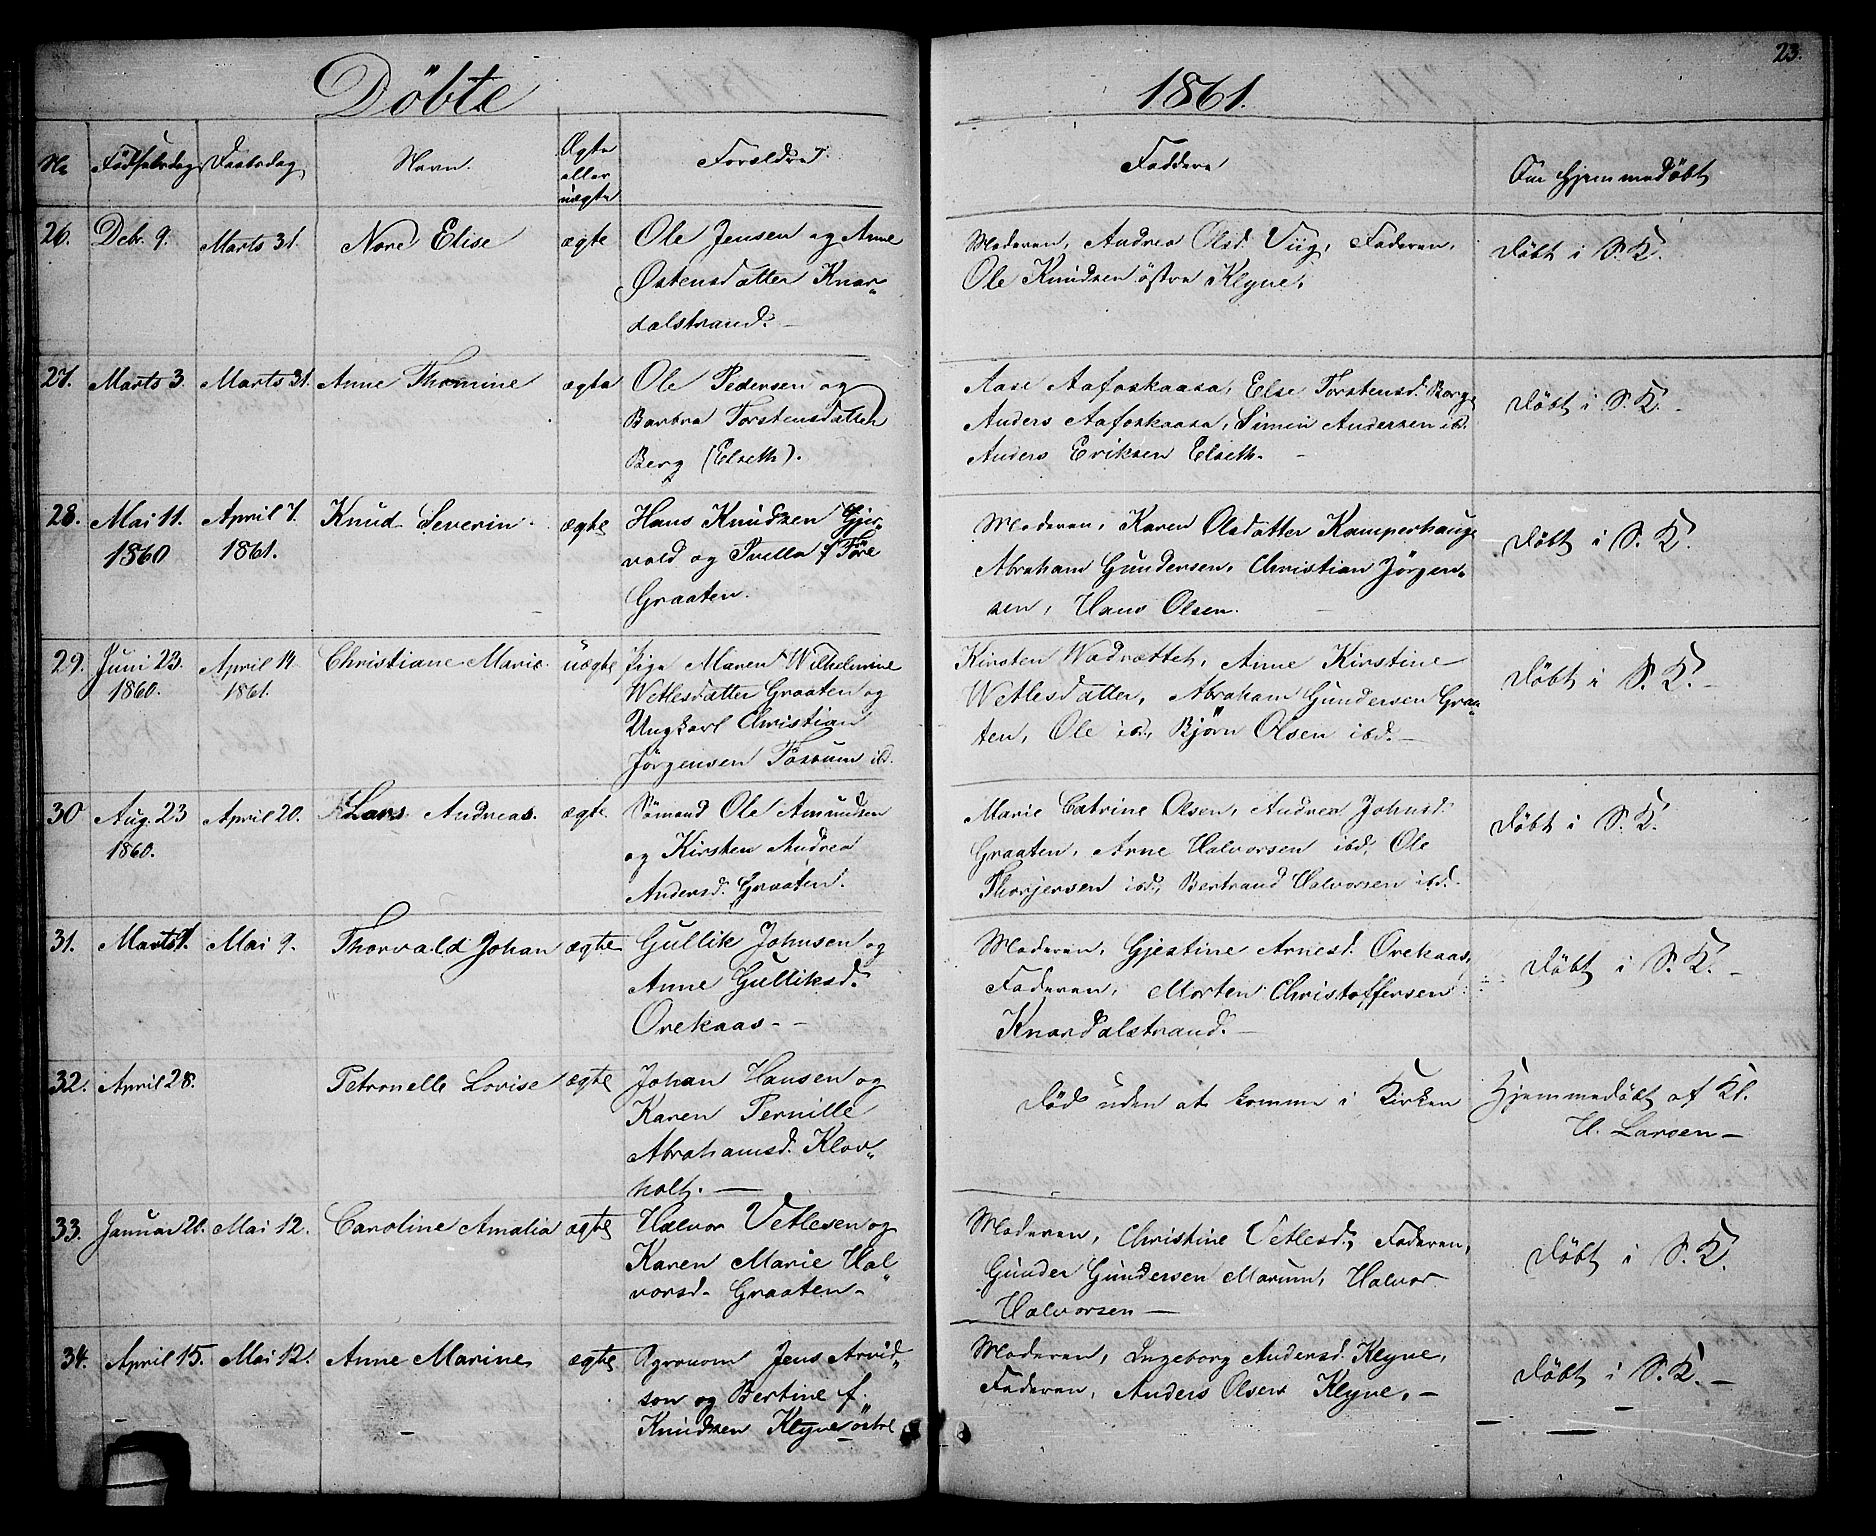 23.
Döbte
1861.
No Födselsdag Daabsdag Navn. Ægte eller uægte Forældre. Faddere Om Hjemmedöbt
26. Decbr. 9. Marts 31. Nore Elise ægte
Ole Jensen og Anne
Østensdatter Knar-
dalstrand.
Moderen, Andrea Olsd. Viig, Faderen,
Ole Knudsen östre Klyve.
Döbt i S. K.
27. Marts 3. Marts 31. Anne Thomine ægte
Ole Pedersen og
Barbra Torstensdatter
Berg (Elseth).
Aase Aafoskaasa, Else Torstensd. Berg
Anders Aafoskaasa, Simen Andersen ibd.
Anders Eriksen Elseth.
Döbt i S. K.
28. Mai 11. 1860 April 7. 1861. Knud Severin. ægte
Hans Knudsen Gjer-
vald og Pnella f. Töre
Graaten.
Moderen, Karen Olsdatter Kamperhaug
Abraham Gundersen, Christian Jörgen-
sen, Hans Olsen.
Döbt i S. K.
29. Juni 23. 1860. April 14 1861. Christiane Marie uægte
Pige Maren Wilhelmine
Wetlesdatter Graaten og
Ungkarl Christian
Jörgensen Fossum ibd.
Kirsten Wadrættet, Anne Kirstine
Wetlesdatter, Abraham Gundersen Graa-
ten, Ole ibd., Björn Olsen ibd.
Döbt i S. K.
30 Aug. 23 1860. April 20. Lars Andreas. ægte
Sömand Ole Amundsen
og Kirsten Andrea
Andersd. Graaten.
Marie Catrine Olsen, Andrea Johnsd.
Graaten, Arne Halvorsen ibd, Ole
Thorjersen ibd., Bertrand Halvorsen ibd.
Döbt i S. K.
31. Marts Mai 9. Thorvald Johan ægte
Gullik Johnsen og
Anne Gulliksd.
Orekaas.
Moderen, Gjestine Arnesd. Orekaas,
Faderen, Morten Christoffersen
Knardalstrand.
Döbt i S. K.
32. April 28. Petronelle Lovise ægte
Johan Hansen og
Karen Pernille
Abrahamsd. Klov-
holt.
Död uden at komme i Kirken
Hjemmedöbt af Kl.
H. Larsen
33. Januar 20. Mai 12. Caroline Amalia ægte
Halvor Vetlesen og
Karen Marie Hal-
vorsd. Graaten.
Moderen, Christine Vetlesd., Faderen,
Gunder Gundersen Marum, Halvor
Halvorsen
Döbt i S. K.
34. April 15. Mai 12. Anne Marine ægte
Agronom Jens Arvid-
son og Bertine f.
Knudsen Klyve östre
Moderen, Ingeborg Andersd. Klyve,
Faderen, Anders Olsen Klyve.
Döbt i S. K.